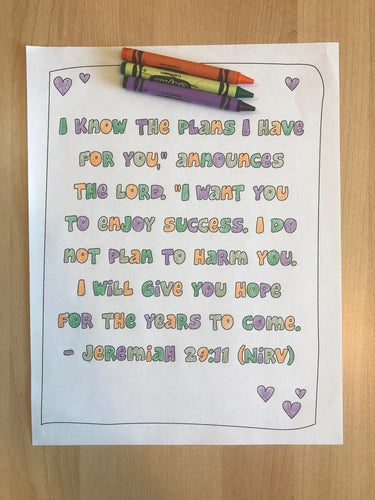 I KNOW THE PLANS I HAVE
FOR YOU," ANNOUNCES
THE LORD. "I WANT YOU
TO ENJOY SUCCESS. I DO
NOT PLAN TO HARM YOU.
I WILL GIVE YOU HOPE
FOR THE YEARS TO COME.
- JEREMIAH 29:11 (NIRV)